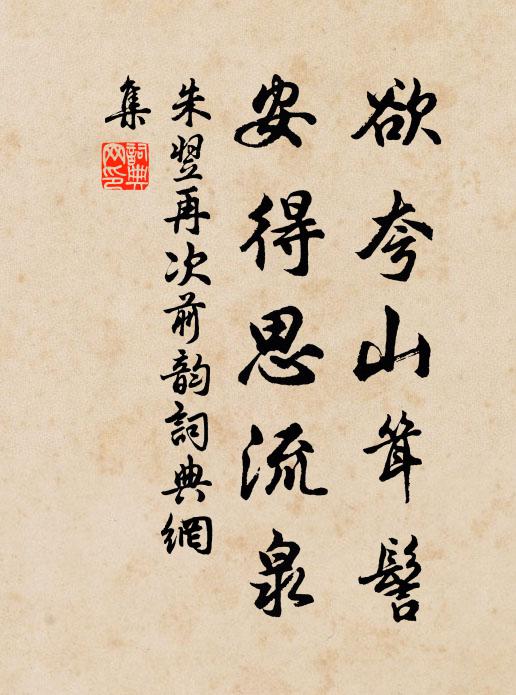 欲夸山耸髻
安得思流泉
朱翌再次前韵詞典網
集
詞典网印